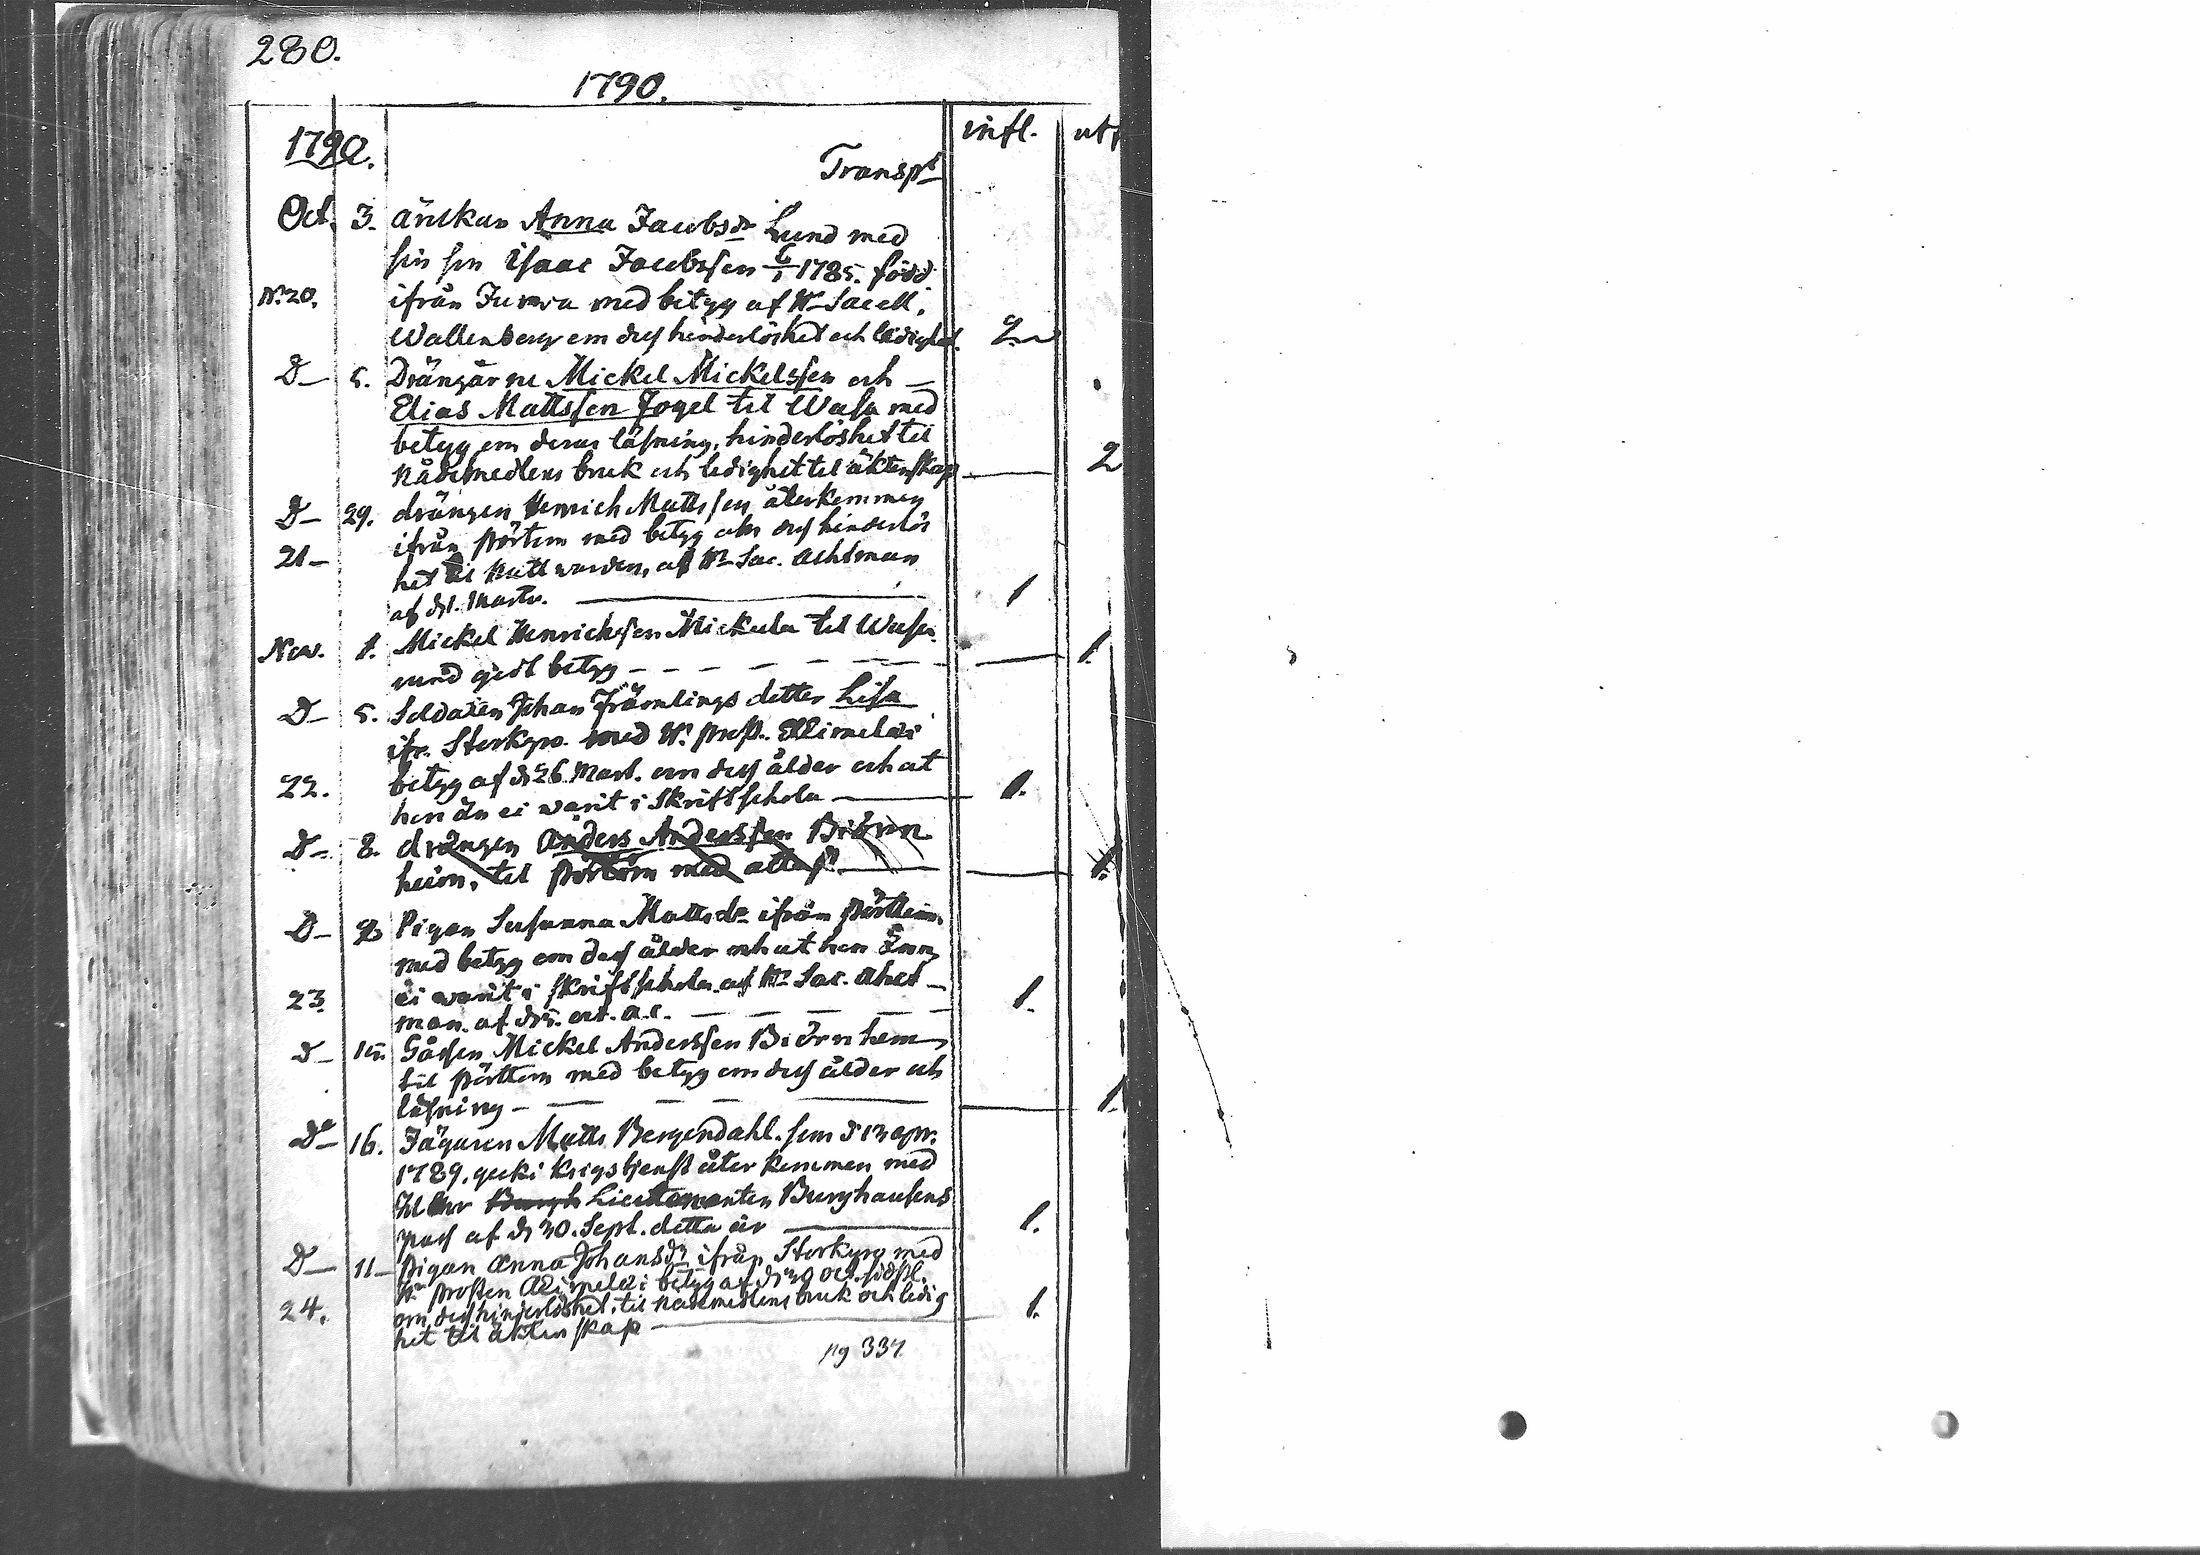 280.
1790.
1790. infl. utf
Transpt
Oct. 3. änckan Anna Jacobsdr Lund med
sin son Isaac Jacobsson 6/1 1785. född
No 20. ifrån Jurva med betyg af Hr Sacell.
Wallenberg om dess hinderlöshet och ledighet. 2
D_ 5. Drängarne Mickel Mickelsson och _
Elias Mattsson Fogel til Wasa med
betyg om deras läsning, hinderlöshet til
Nådemedlens bruk och ledighet til äktenskap 2
D_ 29. drängen Henrich Mattsson återkommen
ifrån Pörtom med betyg om dess hinderlös
21_ het til Nattwarden, af Hr Sac. Achtman
af d 1. Martii. 1
Nov. 1. Mickel Henrichsson Mickula til Wasa
med godt betyg 1.
D_ 5. Soldaten Johan Främlings dotter Lisa
ifr. Storkyro med Hr prost
22. betyg af d 26 Mart. om dess ålder och at
hon än ei warit i Skriftschola 1.
D_ 8. drängen Anders Andersson Biörn
heim, til Pörtom med attest 1.
D_ Pigan Susanna Mattsdr ifrån Pörtom
med betyg om dess ålder och at hon ännu
23. ei warit i skriftschola af Hr Sac. Acht_
man af d 5. oct. a.c. 1.
D_ Gåssen Mickel Andersson Biörnhem
til Pörtom med betyg om dess ålder och
läsning 1.
Do 16. Jägaren Matts Bergendahl. som d 13 apr.
1789. geck i Krigstjenst åter kommen med
Lieutenanten Burghausens
pass af d 30. Sept. detta år 1.
D_ 11_ pigan Anna Johansdr ifrån Storkyro med
Hr Prosten betyg af d 30 oct. sidstl.
24. om dess hinderlöshet, til nådemedlens bruk och ledig 1.
het til äktenskap
pg 337.